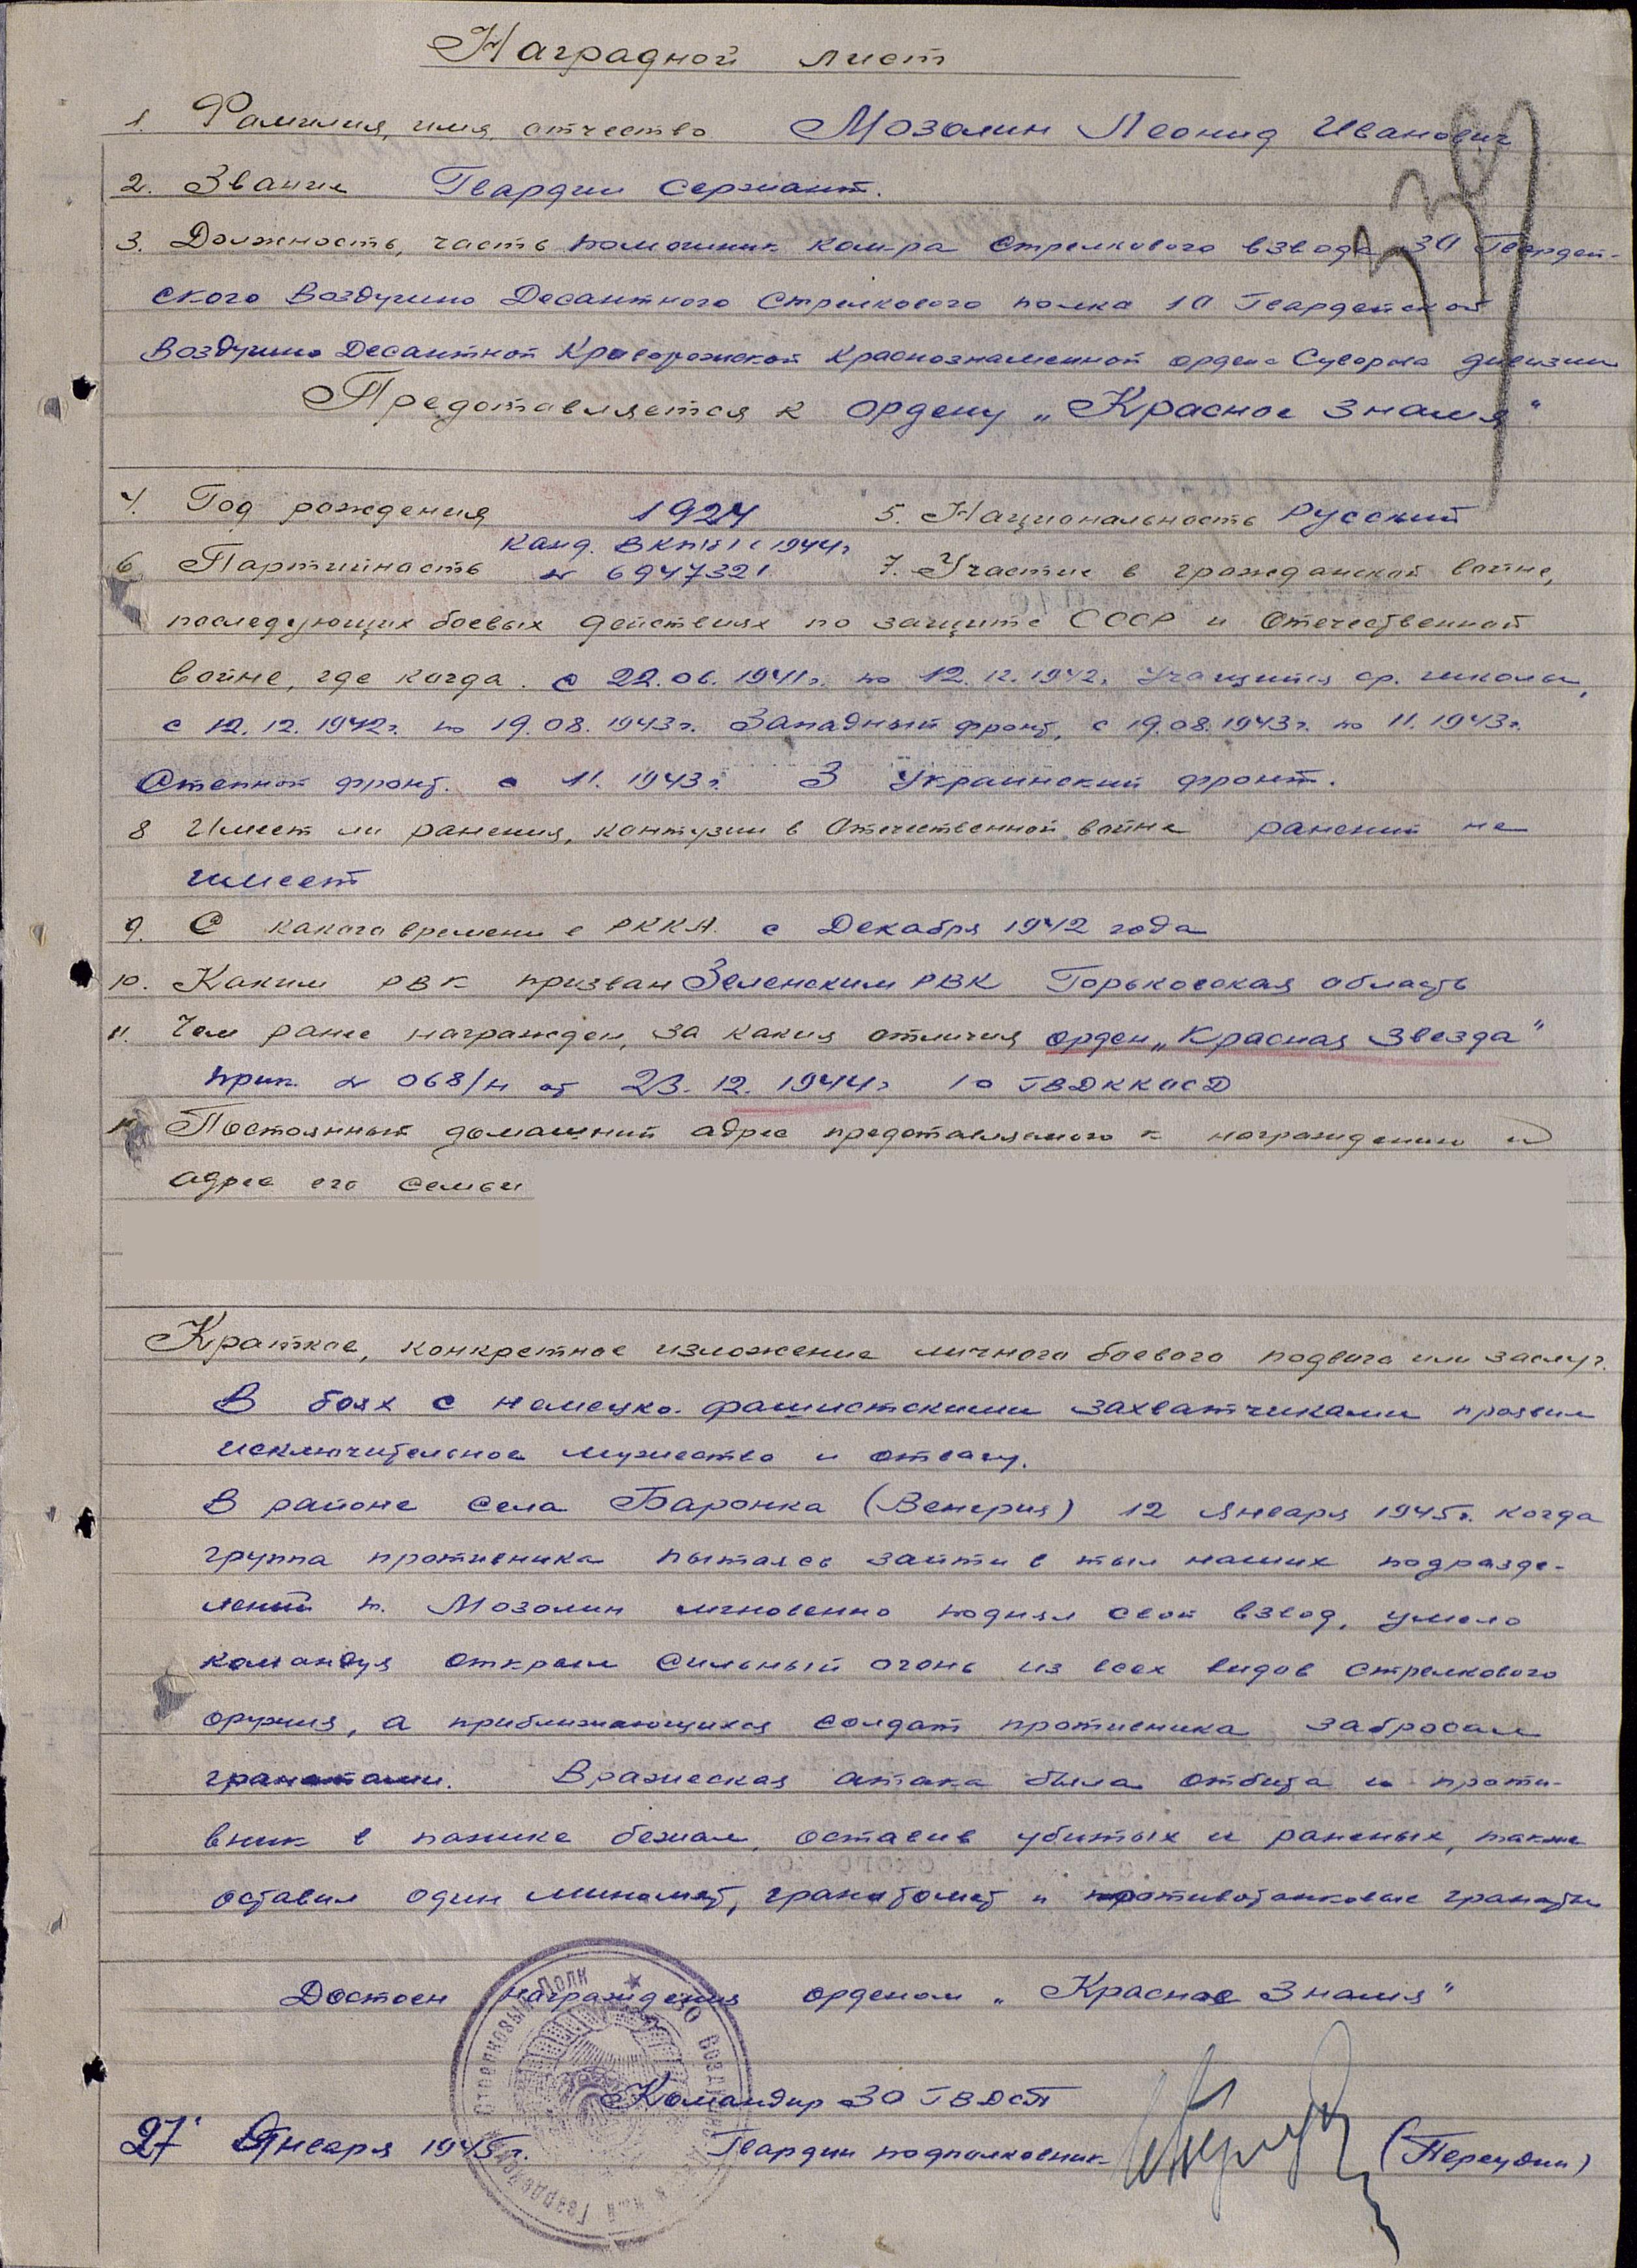 Наградной лист
1. Фамилия, имя, отчество Мозолин Леонид Иванович
2. Звание Гвардии сержант.
3. Должность, часть помощник ком-ра стрелкового взвода 30 Гвардей-
ского Воздушно Десантного Стрелкового полка 10 Гвардейской
Воздушно Десантной Криворожской Краснознаменной ордена Суворова дивизии
Представляется к ордену „Красное Знамя"
4. Год рождения 1924 5. Национальность Русский
канд. ВКП(б) с 1944г
6 Партийность № 6947321 7. Участие в гражданской войне,
последующих боевых действиях по защите СССР и Отечественной
войне, где когда. с 22.06.1941г. по 12.12.1942г. Учащийся ср. школы,
с 12.12.1942г. по 19.08.1943г. Западный фронт, с 19.08.1943г. по 11.1943г.
Степной фронт. с 11.1943г. 3 Украинский фронт.
8 Имеет ли ранения, контузии в Отечественной войне ранений не
имеет
9. С какого времени в РККА. с Декабря 1942 года
10. Каким РВК призван Зеленским РВК Горьковская область
11. Чем ранее награжден, за какия отличия орден „Красная Звезда"
прик. № 068/н от 23.12.1944г 10 ГВДККОСД
Постоянный домашний адрес представляемого к награждению и
адрес его семьи
Краткое, конкретное изложение личного боевого подвига или заслуг.
В боях с немецко-фашистскими захватчиками проявил
исключительное мужество и отвагу.
В районе села Баронка (Венгрия) 12 января 1945г. когда
группа противника пыталась зайти в тыл наших подразде-
лений т. Мозолин мгновенно поднял свой взвод, умело
командуя открыл сильный огонь из всех видов стрелкового
оружия, а приближающихся солдат противника забросал
гранатами. Вражеская атака была отбита и проти-
вник в панике бежал, оставив убитых и раненых, также
оставил один миномет, гранатомет и противотанковые гранаты
Достоен награждения орденом „Красное Знамя"
Командир 30 ГВДСП
27 Января 1945г. Гвардии подполковник